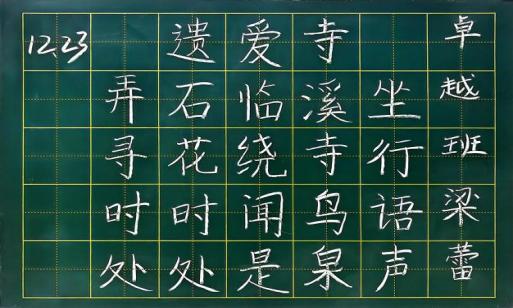 12.23
遗爱寺
弄石临溪坐
寻花绕寺行
时时闻鸟语
处处是泉声
卓越班梁蕾